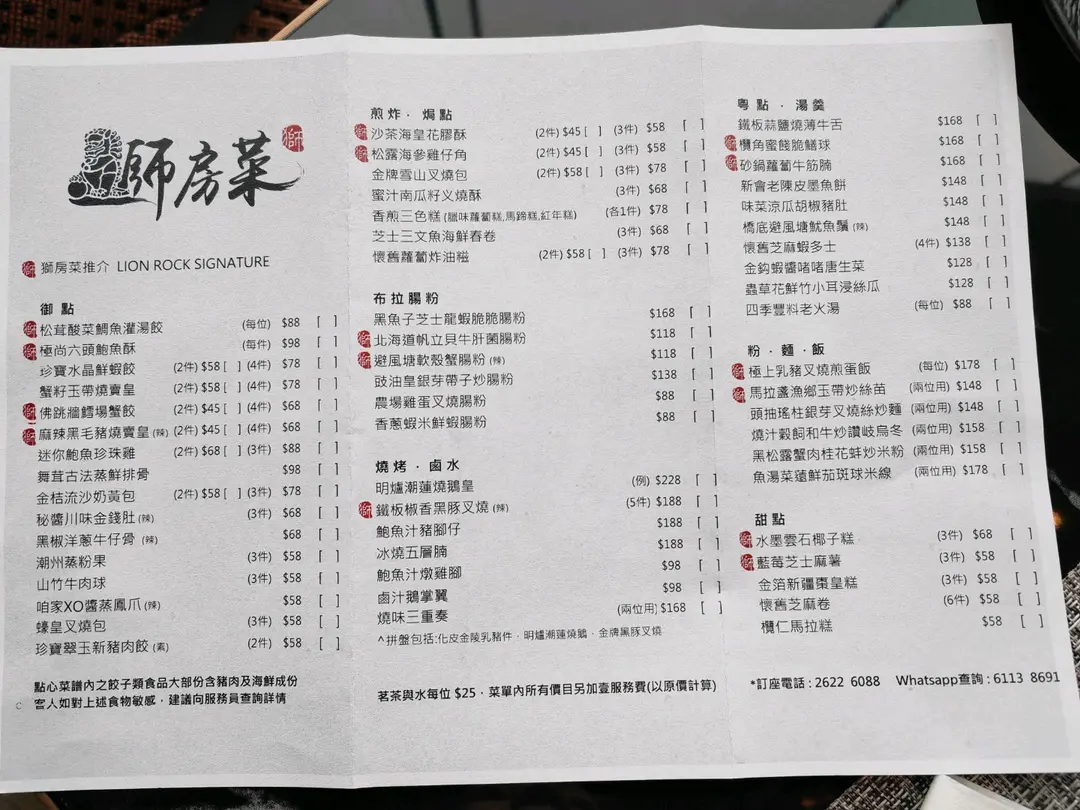 師房菜
獅
獅 獅房菜推介 LION ROCK SIGNATURE
御點
獅 松茸酸菜鯛魚灌湯餃 (每位) $88 [ ]
獅 極尚六頭鮑魚酥 (每件) $98 [ ]
珍寶水晶鮮蝦餃 (2件) $58 [ ] (4件) $78 [ ]
蟹籽玉帶燒賣皇 (2件) $58 [ ] (4件) $78 [ ]
獅 佛跳牆鱈場蟹餃 (2件) $45 [ ] (4件) $68 [ ]
獅 麻辣黑毛豬燒賣皇 (辣) (2件) $45 [ ] (4件) $68 [ ]
迷你鮑魚珍珠雞 (2件) $68 [ ] (3件) $88 [ ]
舞茸古法蒸鮮排骨 $98 [ ]
金桔流沙奶黃包 (2件) $58 [ ] (3件) $78 [ ]
秘醬川味金錢肚 (辣) (3件) $68 [ ]
黑椒洋蔥牛仔骨 (辣) $68 [ ]
潮州蒸粉果 (3件) $58 [ ]
山竹牛肉球 (3件) $58 [ ]
咱家XO醬蒸鳳爪 (辣) $58 [ ]
蠔皇叉燒包 (3件) $58 [ ]
珍寶翠玉新豬肉餃 (素) (2件) $58 [ ]
點心菜譜內之餃子類食品大部份含豬肉及海鮮成份
客人如對上述食物敏感，建議向服務員查詢詳情
煎炸．焗點
獅 沙茶海皇花膠酥 (2件) $45 [ ] (3件) $58 [ ]
獅 松露海參雞仔角 (2件) $45 [ ] (3件) $58 [ ]
金牌雪山叉燒包 (2件) $58 [ ] (3件) $78 [ ]
蜜汁南瓜籽叉燒酥 (3件) $68 [ ]
香煎三色糕 (臘味蘿蔔糕,馬蹄糕,紅年糕) (各1件) $78 [ ]
芝士三文魚海鮮春卷 (3件) $68 [ ]
懷舊蘿蔔炸油糍 (2件) $58 [ ] (3件) $78 [ ]
布拉腸粉
黑魚子芝士龍蝦脆脆腸粉 $168 [ ]
獅 北海道帆立貝牛肝菌腸粉 $118 [ ]
獅 避風塘軟殼蟹腸粉 (辣) $118 [ ]
豉油皇銀芽帶子炒腸粉 $138 [ ]
農場雞蛋叉燒腸粉 $88 [ ]
香蔥蝦米鮮蝦腸粉 $88 [ ]
燒烤．鹵水
明爐潮蓮燒鵝皇 (例) $228 [ ]
獅 鐵板椒香黑豚叉燒 (辣) (5件) $188 [ ]
鮑魚汁豬腳仔 $188 [ ]
冰燒五層腩 $188 [ ]
鮑魚汁燉雞腳 $98 [ ]
鹵汁鵝掌翼 $98 [ ]
燒味三重奏 (兩位用) $168 [ ]
^拼盤包括:化皮金陵乳豬件．明爐潮蓮燒鵝．金牌黑豚叉燒
茗茶與水每位 $25．菜單內所有價目另加壹服務費(以原價計算)
粵點．湯羹
鐵板蒜鹽燒薄牛舌 $168 [ ]
獅 欖角蜜餞脆鱔球 $168 [ ]
獅 砂鍋蘿蔔牛筋腩 $168 [ ]
新會老陳皮墨魚餅 $148 [ ]
味菜涼瓜胡椒豬肚 $148 [ ]
橋底避風塘魷魚鬚 (辣) $148 [ ]
懷舊芝麻蝦多士 (4件) $138 [ ]
金鈎蝦醬啫啫唐生菜 $128 [ ]
蟲草花鮮竹小耳浸絲瓜 $128 [ ]
四季豐料老火湯 (每位) $88 [ ]
粉．麵．飯
獅 極上乳豬叉燒煎蛋飯 (每位) $178 [ ]
獅 馬拉盞漁鄉玉帶炒絲苗 (兩位用) $148 [ ]
頭抽瑤柱銀芽叉燒絲炒麵 (兩位用) $148 [ ]
燒汁穀飼和牛炒讚岐烏冬 (兩位用) $158 [ ]
黑松露蟹肉桂花蚌炒米粉 (兩位用) $158 [ ]
魚湯菜薳鮮茄斑球米線 (兩位用) $178 [ ]
甜點
獅 水墨雲石椰子糕 (3件) $68 [ ]
獅 藍莓芝士麻薯 (3件) $58 [ ]
金箔新疆棗皇糕 (3件) $58 [ ]
懷舊芝麻卷 (6件) $58 [ ]
欖仁馬拉糕 $58 [ ]
*訂座電話 : 2622 6088 Whatsapp查詢 : 6113 8691